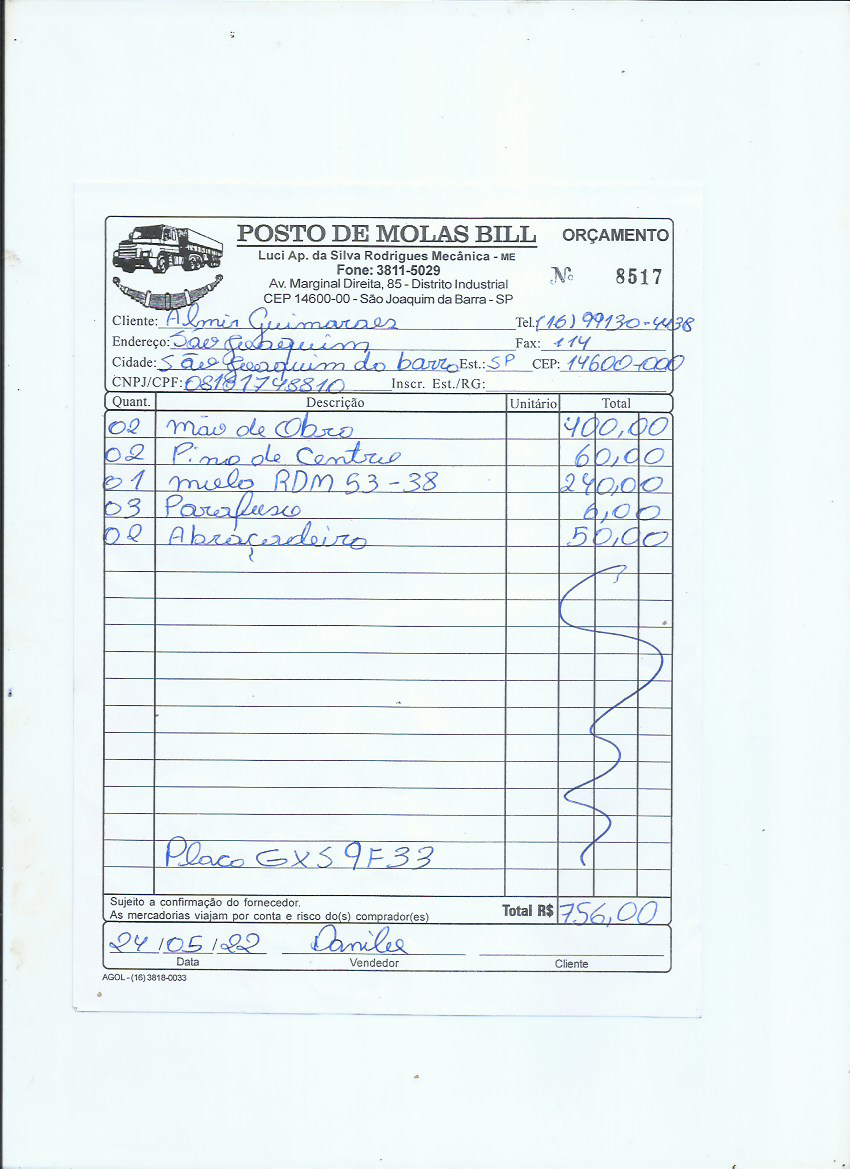 POSTO DE MOLAS BILL ORÇAMENTO
Luci Ap. da Silva Rodrigues Mecânica - ME
Fone: 3811-5029
Nº 8517
Av. Marginal Direita, 85 - Distrito Industrial
CEP 14600-00 - São Joaquim da Barra - SP
Cliente: Almir Guimaraes Tel. (16) 99130-4438
Endereço: São Joaquim Fax: 114
Cidade: São Joaquim da barra Est.: SP CEP: 14600-000
CNPJ/CPF: 08181748810 Inscr. Est./RG:
Quant. Descrição Unitário Total
02 mão de Obra 400,00
02 Pino de Centro 60,00
01 mola RDM 53-38 240,00
03 Parafuso 6,00
02 Abraçadeira 50,00
Placa GXS 9F33
Sujeito a confirmação do fornecedor.
As mercadorias viajam por conta e risco do(s) comprador(es) Total R$ 756,00
24/05/22 Danilo
Data Vendedor Cliente
AGOL - (16) 3818-0033